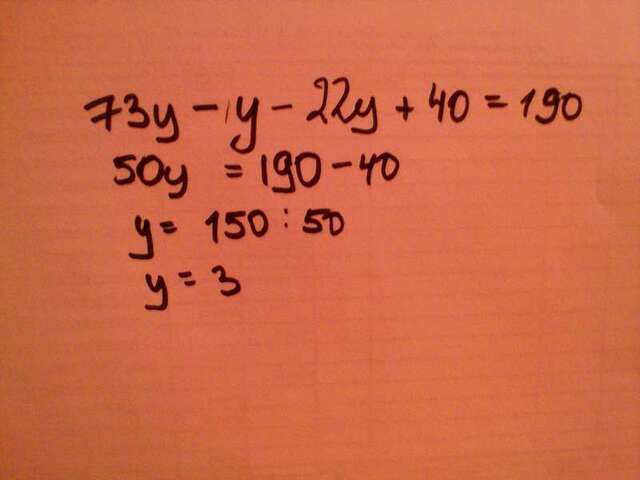 73y - 1y - 22y + 40 = 190
50y = 190 - 40
y = 150 : 50
y = 3